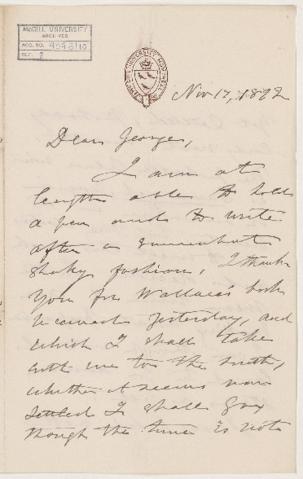 McGILL UNIVERSITY
ARCHIVES
ACC. NO.
REF.
Nov 17, 1892
Dear George,
I am at
length able to hold
a pen and to write
after a somewhat
shaky fashion, I thank
you for Wallace's book
received yesterday, and
which I shall take
with me to the south,
whither it seems now
settled I shall go,
though the time is not